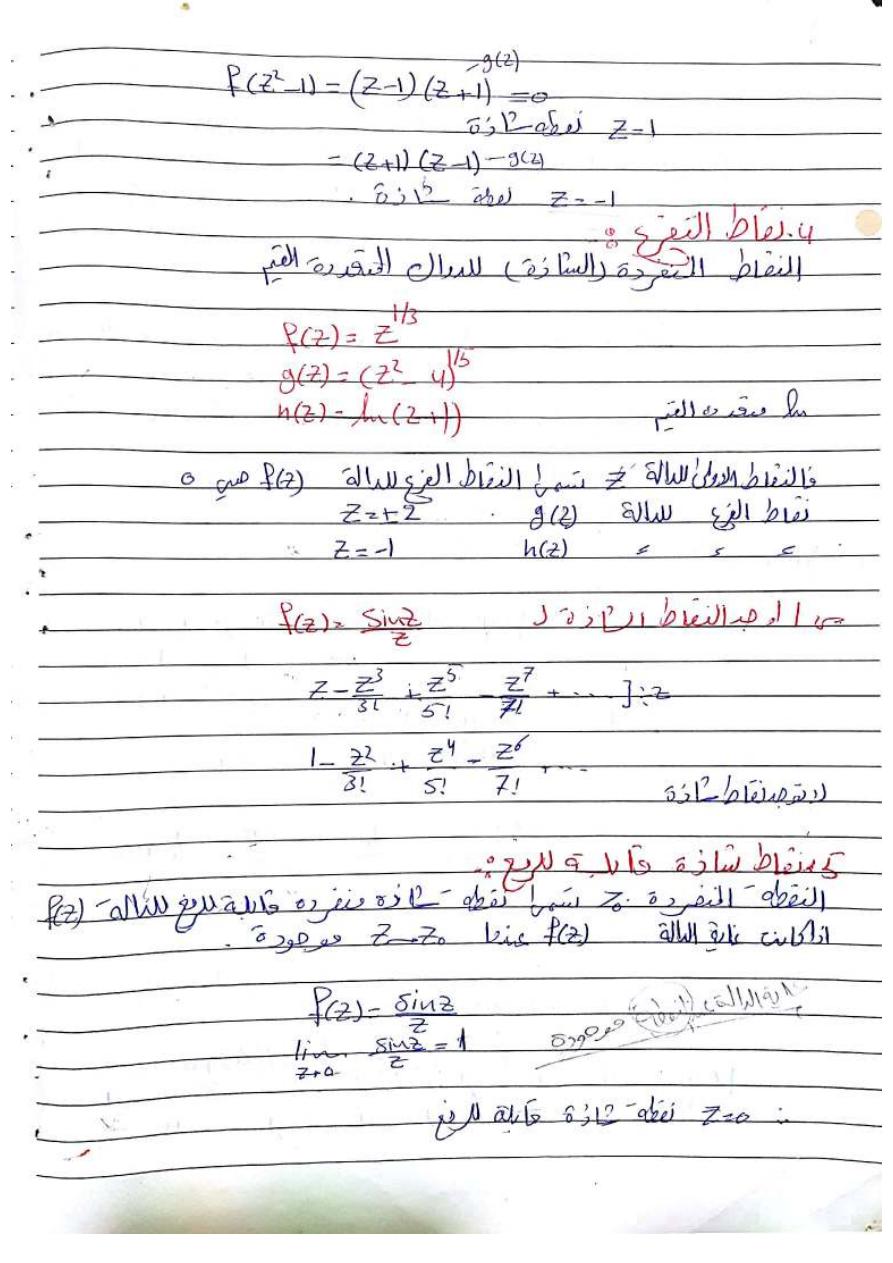 f(z²-1) = (z-1)(z+1)^-g(z) = 0
z=1 نقطة شاذة
= (z+1)(z-1)-g(z)
z=-1 نقطة شاذة .
4. نقاط التفرع :-
النقاط المنفردة (الشاذة) للدوال المتعددة القيم
f(z) = z^1/3
g(z) = (z²-4)^1/5
h(z) - ln(z+1) ln متعددة القيم
فالنقاط الاولى للدالة z تسمى النقاط الفرع للدالة f(z) هي 0
نقاط الفرع للدالة g(z) z=±2
= = = h(z) z=-1
س1 اوجد النقاط الشاذة ل f(z) = sinz/z
z - z³/3! + z⁵/5! - z⁷/7! + ....] ÷ z
1 - z²/3! + z⁴/5! - z⁶/7! ....
لا توجد نقاط شاذة
5. نقاط شاذة قابلة للرفع :-
النقطة المنفردة z₀ تسمى نقطة شاذه منفرده قابلة للرفع للدالة f(z)
اذا كانت غاية الدالة f(z) عندما z→z₀ موجودة .
f(z) - sinz/z
غاية الدالة عند النقطة موجودة
lim z→0 sinz/z = 1
∴ z=0 نقطة شاذة قابلة للرفع